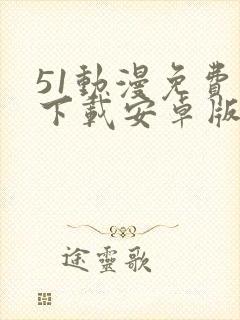 51動漫免費
下載安卓版
途靈歌